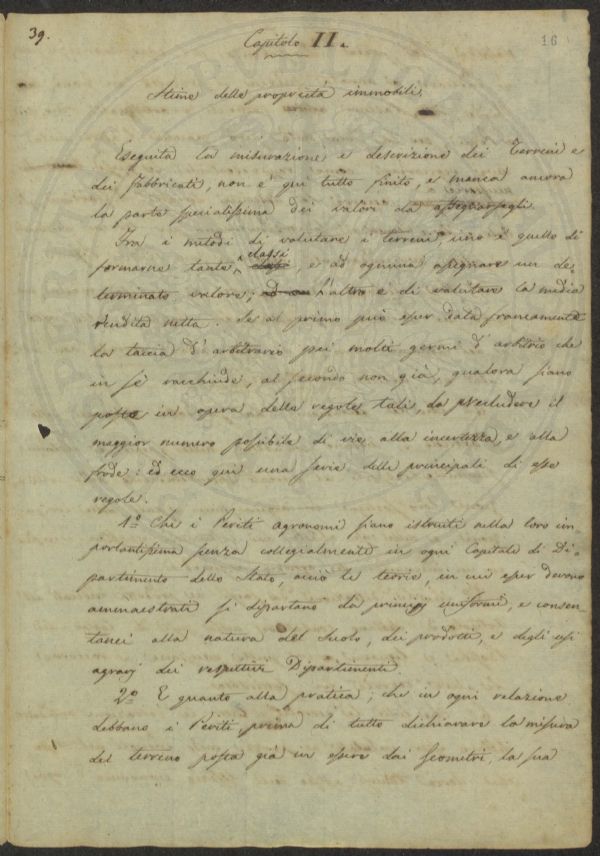 39.
16
Capitolo II.
Stime delle proprietà immobili.
Eseguita la misurazione e descrizione dei Terreni e
dei fabbricati, non è qui tutto finito, e manca ancora
la parte specialissima dei valori da assegnarsegli.
Fra i metodi di valutare i terreni, uno è quello di
formarne tante classi, e ad ognuna assegnare un de-
terminato valore; l'altro è di valutare la media
rendita netta. Se al primo può esser data francamente
la taccia d'arbitrario pei molti germi d'arbitrio che
in sé racchiude, al secondo non già, qualora siano
poste in opera delle regole tali da precludere il
maggior numero possibile di vie alla incertezza, e alla
frode: ed ecco qui una serie delle principali di esse
regole.
1º Che i Periti agronomi siano istruiti nella loro im
portantissima scienza collegialmente in ogni Capitale di Di-
partimento dello Stato, acciò le teorie, in cui esser devono
ammaestrati si dipartano da principj uniformi, e consen-
tanei alla natura del Suolo, dei prodotti, e degli usi
agrarj dei respettivi Dipartimenti.
2º E quanto alla pratica; che in ogni relazione
debbano i Periti prima di tutto dichiarare la misura
del terreno posta già in essere dai Geometri, la sua